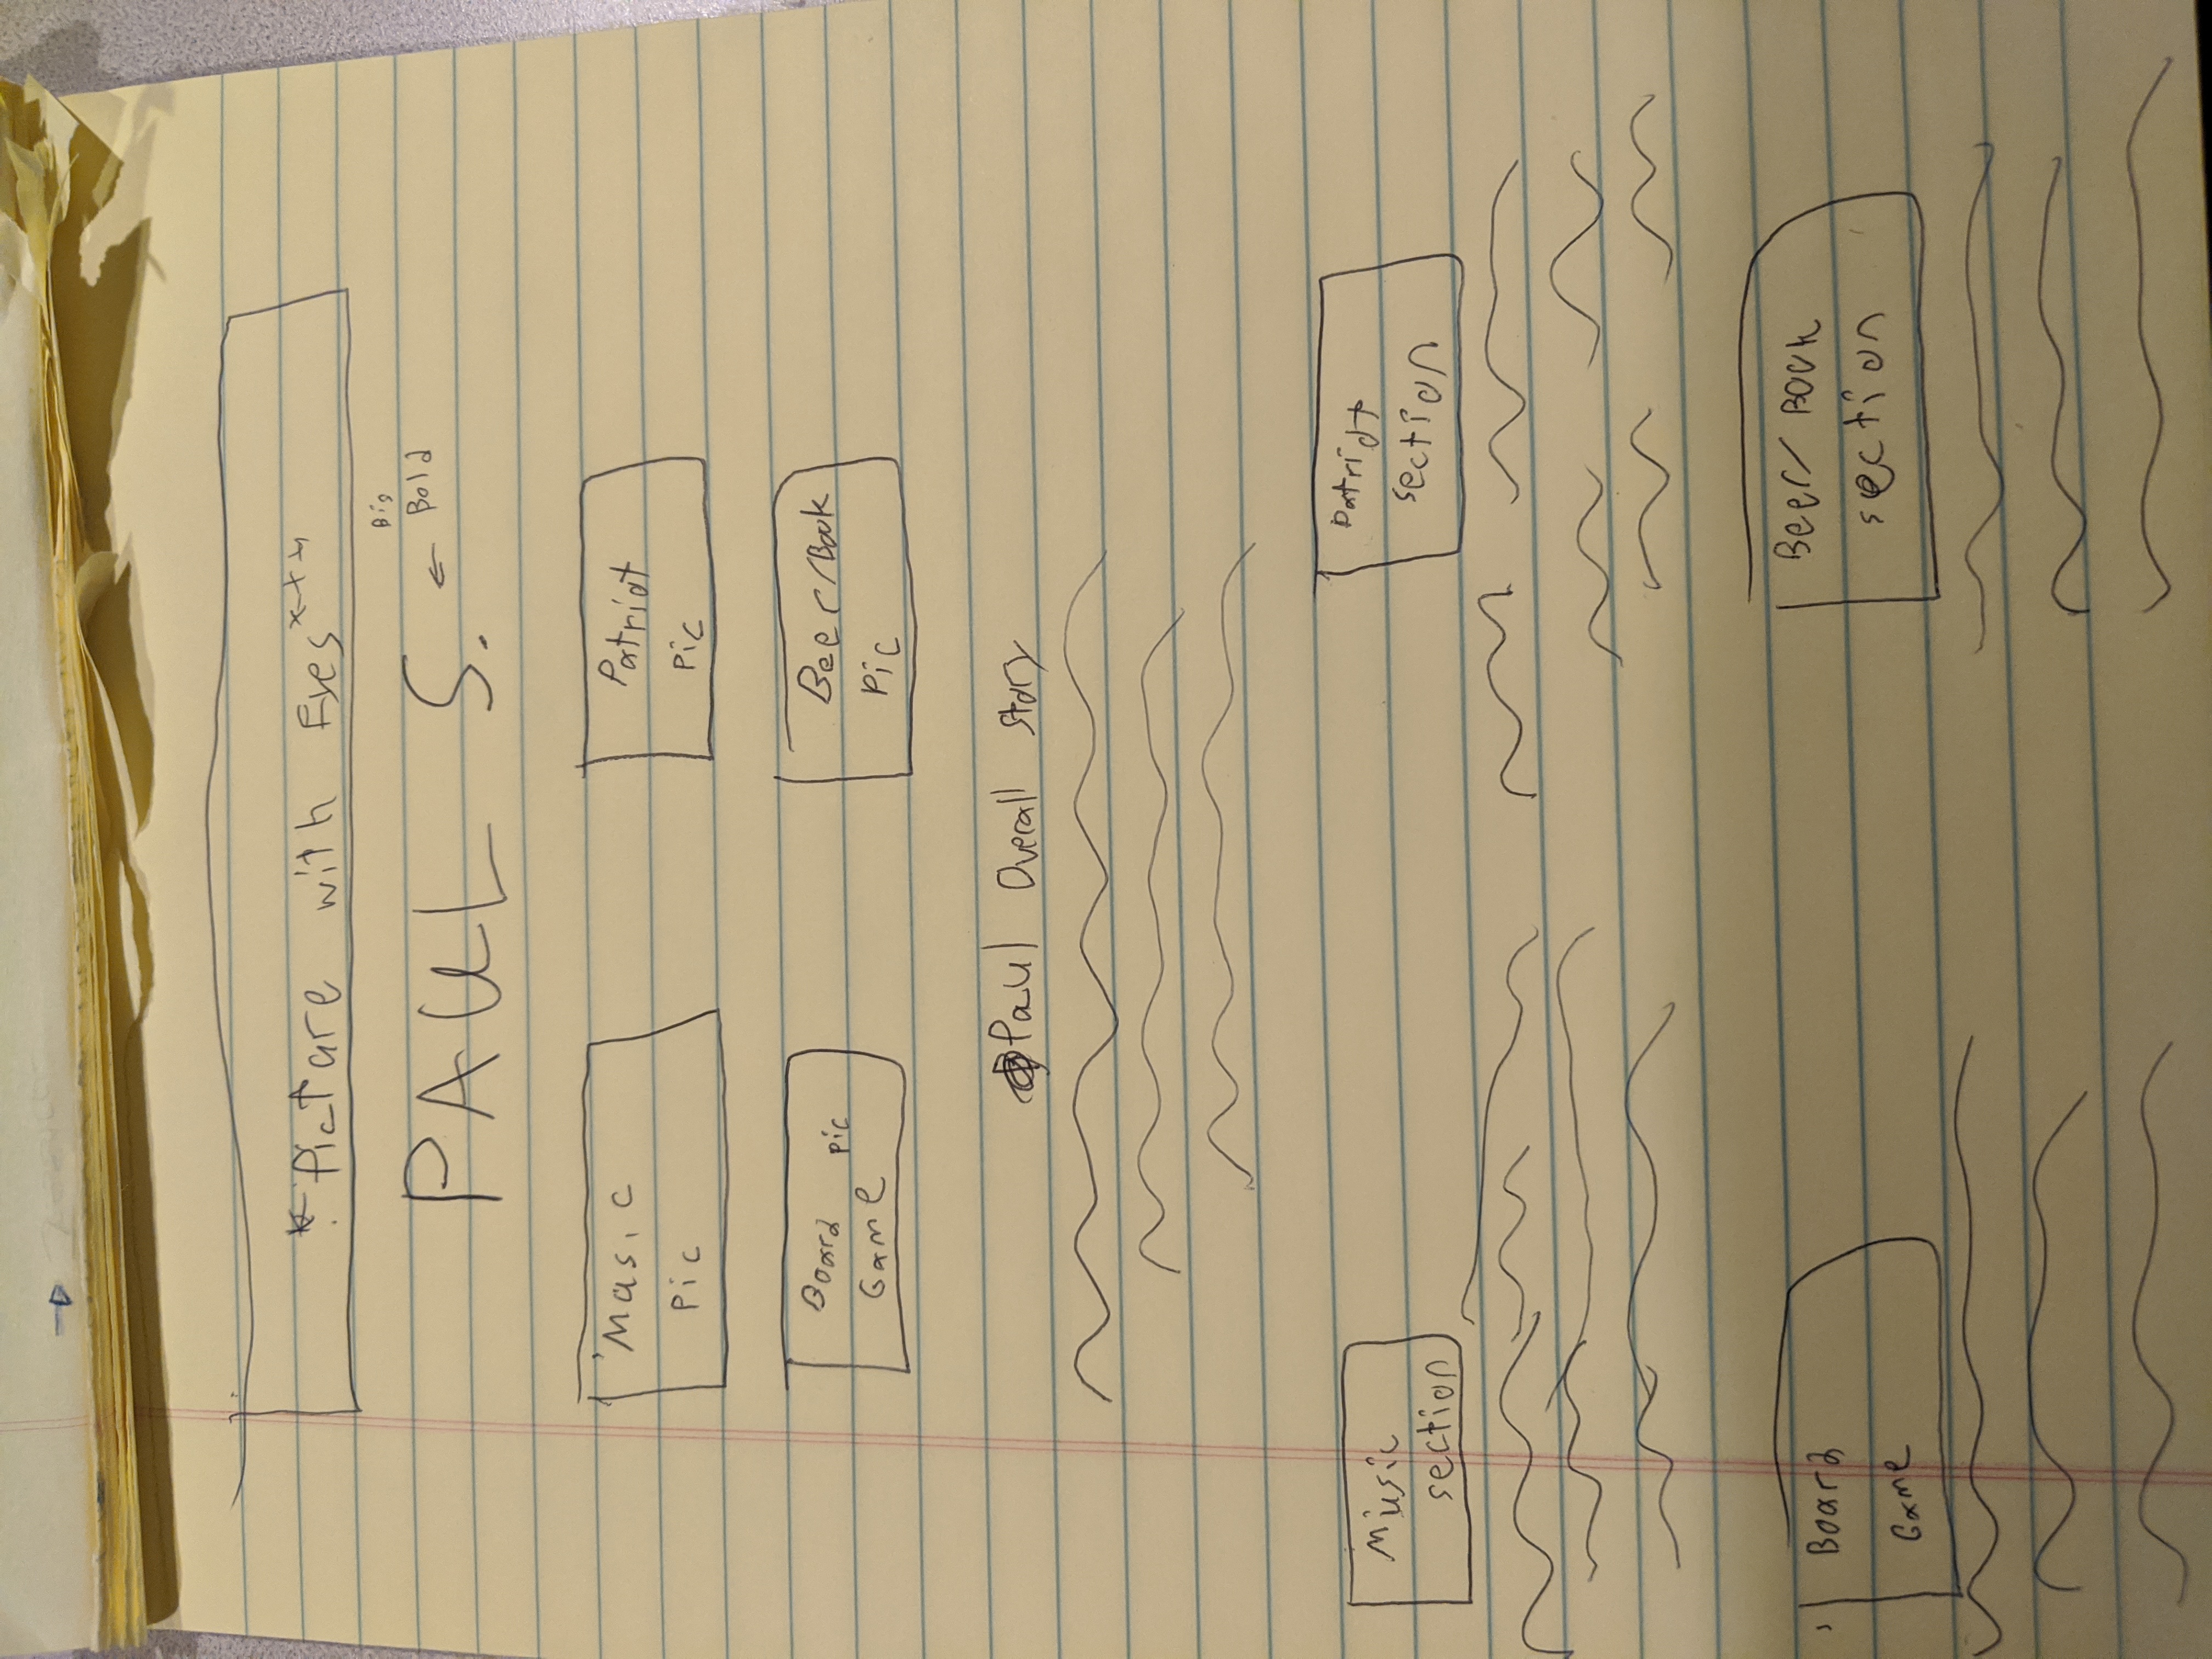 *Picture with Eyes***
Big
PAUL S. ← Bold
Music
Pic
Patriot
Pic
Board pic
Game
Beer/Book
Pic
Paul Overall story
Music
section
Patriot
section
Board
Game
Beer/Book
section